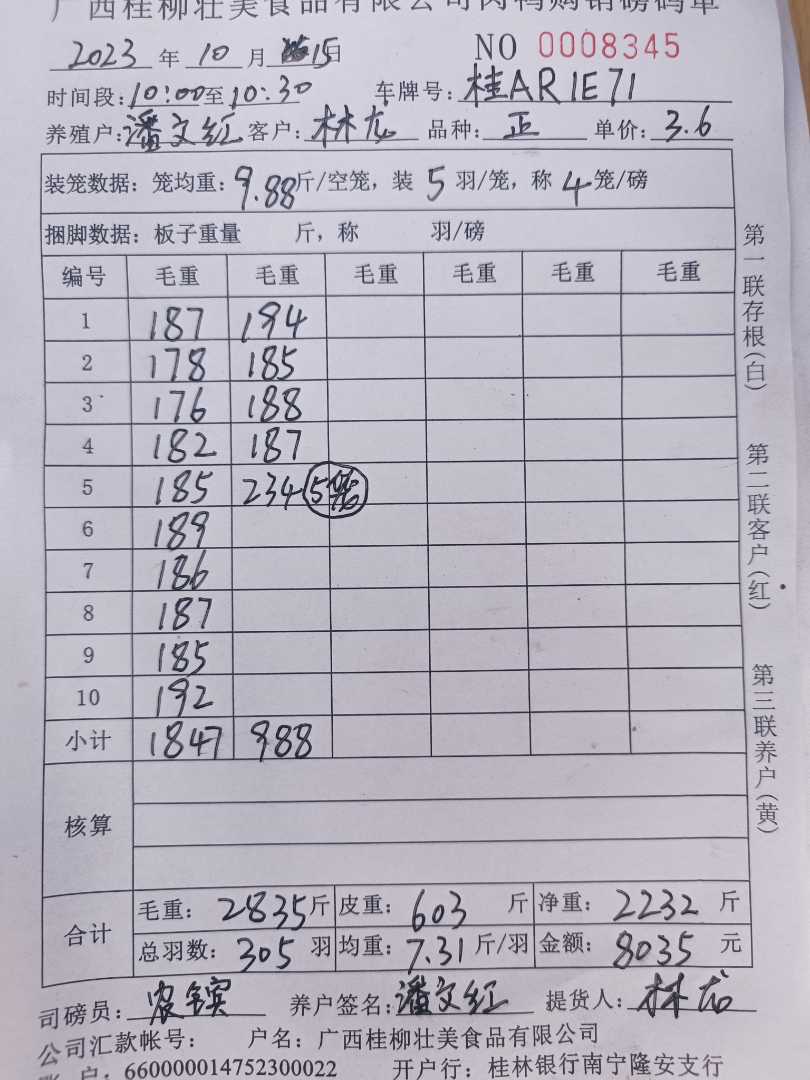 广西桂柳壮美食品有限公司肉鸭购销磅码单
2023 年 10 月 15日 NO 0008345
时间段:10:00至10:30 车牌号:桂AR1E71
养殖户:潘文红 客户:林龙 品种:正 单价:3.6
装笼数据:笼均重:9.88斤/空笼,装 5 羽/笼,称 4 笼/磅
捆脚数据:板子重量 斤,称 羽/磅
编号 毛重 毛重 毛重 毛重 毛重 毛重
1 187 194
2 178 185
3 176 188
4 182 187
5 185 234 5笼
6 189
7 186
8 187
9 185
10 192
小计 1847 988
核算
合计 毛重:2835斤 皮重:603 斤 净重:2232 斤
总羽数:305 羽 均重:7.31斤/羽 金额:8035 元
司磅员: 养户签名:潘文红 提货人:林龙
公司汇款帐号: 户名:广西桂柳壮美食品有限公司
账 户:660000014752300022 开户行:桂林银行南宁隆安支行
第一联存根(白)
第二联客户(红)
第三联养户(黄)